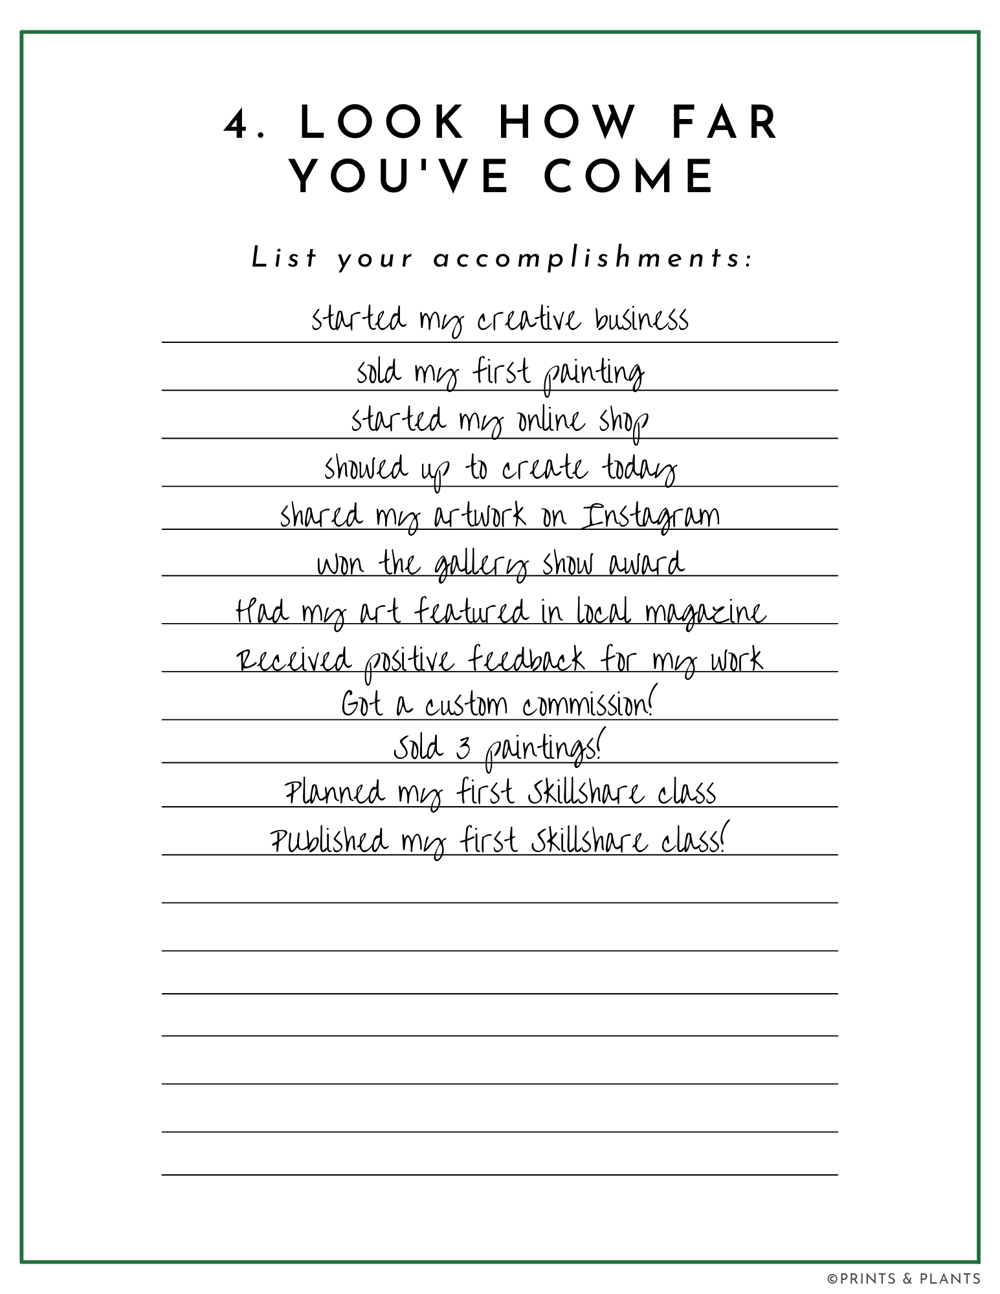 4. LOOK HOW FAR
YOU'VE COME
List your accomplishments:
started my creative business
sold my first painting
started my online shop
showed up to create today
shared my artwork on Instagram
won the gallery show award
Had my art featured in local magazine
Received positive feedback for my work
Got a custom commission!
Sold 3 paintings!
Planned my first Skillshare class
Published my first Skillshare class!
©PRINTS & PLANTS